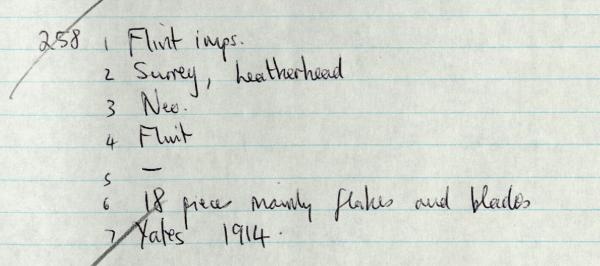 258 1 Flint imps.
2 Surrey, Leatherhead
3 Neo.
4 Flint
5 —
6 18 pieces mainly flakes and blades
7 Yates 1914.